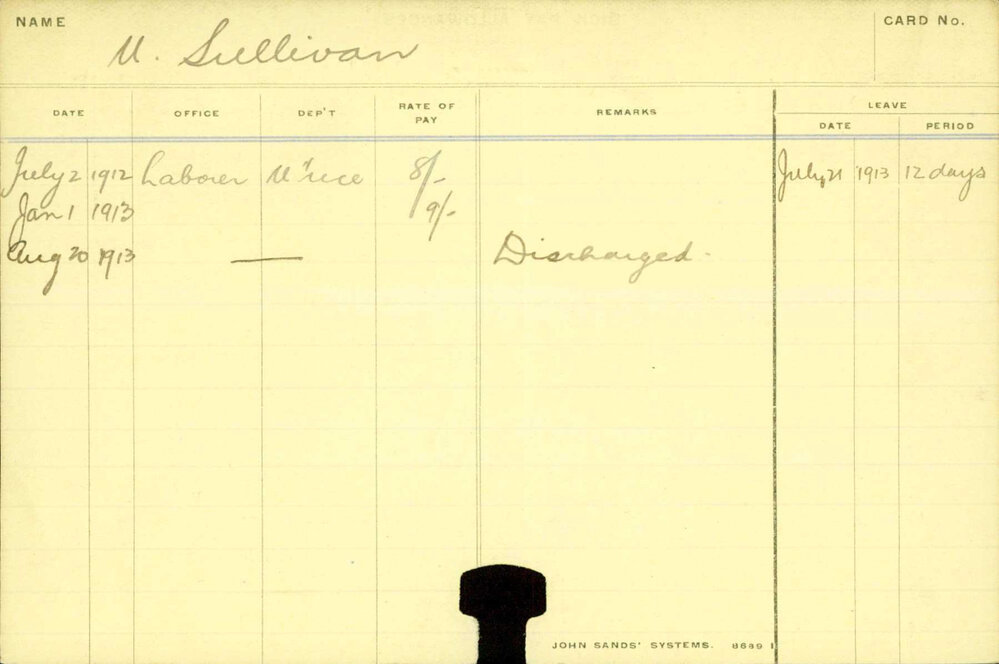 NAME
M. Sullivan
CARD No.
DATE OFFICE DEP'T RATE OF PAY REMARKS LEAVE
DATE PERIOD
July 2 1912 Laborer M'nce 8/- July 21 1913 12 days
Jan 1 1913 9/-
Aug 20 1913 — Discharged.
JOHN SANDS' SYSTEMS. 8689